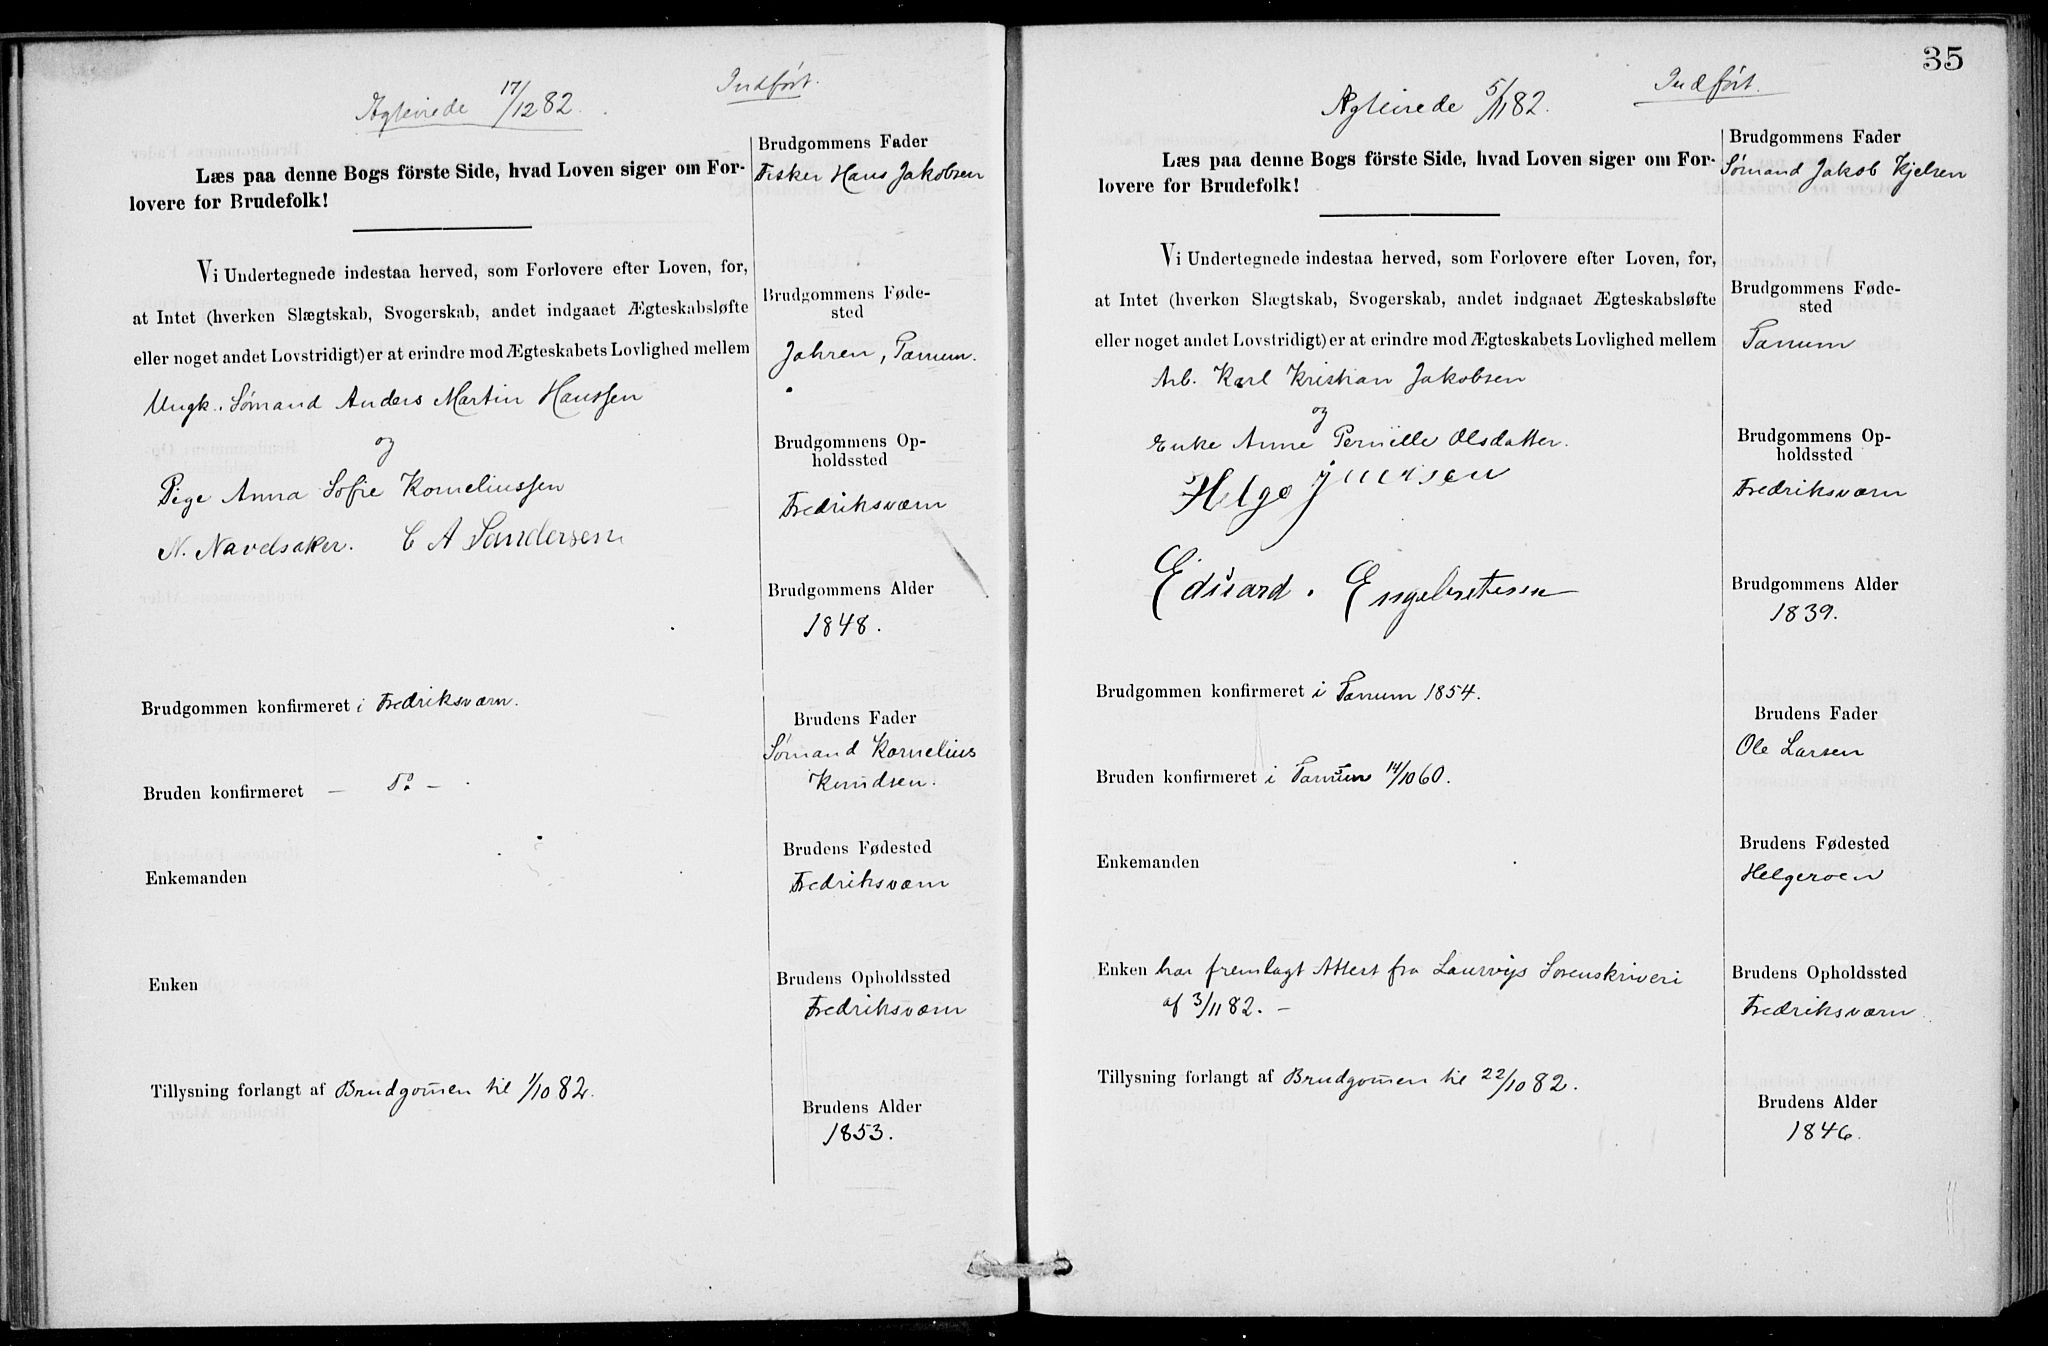 Ægteviede 17/12 82.
Indført.
Læs paa denne Bogs förste Side, hvad Loven siger om For-
lovere for Brudefolk!
Vi Undertegnede indestaa herved, som Forlovere efter Loven, for,
at Intet (hverken Slægtskab, Svogerskab, andet indgaaet Ægteskabsløfte
eller noget andet Lovstridigt) er at erindre mod Ægteskabets Lovlighed mellem
Ungk. Sømand Anders Martin Hanssen
og
Pige Anna Sofie Korneliussen
N. Navelsaker. C A Sandersen
Brudgommen konfirmeret i Fredriksværn.
Bruden konfirmeret – Do –
Enkemanden
Enken
Tillysning forlangt af Brudgom̄en til 1/10 82.
Brudgommens Fader
Fisker Hans Jakobsen
Brudgommens Føde-
sted
Jahren, Tanum.
Brudgommens Op-
holdssted
Fredriksværn
Brudgommens Alder
1848.
Brudens Fader
Sømand Kornelius
Knudsen.
Brudens Fødested
Fredriksværn
Brudens Opholdssted
Fredriksværn
Brudens Alder
1853.
35
Ægteviede 5/11 82.
Indført.
Læs paa denne Bogs förste Side, hvad Loven siger om For-
lovere for Brudefolk!
Vi Undertegnede indestaa herved, som Forlovere efter Loven, for,
at Intet (hverken Slægtskab, Svogerskab, andet indgaaet Ægteskabsløfte
eller noget andet Lovstridigt) er at erindre mod Ægteskabets Lovlighed mellem
Arb. Karl Kristian Jakobsen
og
Enke Anne Pernille Olsdatter.
Helge
Edvard. Engebretsen
Brudgommen konfirmeret i Tanum 1854.
Bruden konfirmeret i Tanum 14/10 60.
Enkemanden
Enken har fremlagt Attest fra Laurvigs Sorenskriveri
af 3/11 82. –
Tillysning forlangt af Brudgom̄en til 22/10 82.
Brudgommens Fader
Sømand Jakob Kjelsen
Brudgommens Føde-
sted
Tanum
Brudgommens Op-
holdssted
Fredriksværn
Brudgommens Alder
1839.
Brudens Fader
Ole Larsen
Brudens Fødested
Helgeroen
Brudens Opholdssted
Fredriksværn
Brudens Alder
1846.